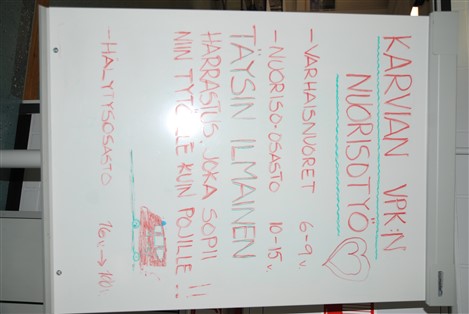 KARVIAN VPK:N
NUORISOTYÖ
- VARHAISNUORET 6-9 v.
- NUORISO-OSASTO 10-15 v.
TÄYSIN ILMAINEN
HARRASTUS, JOKA SOPII
NIN TYTÖILLE KUIN POJILLE !!
- HÄLYTYSOSASTO 16 v. →